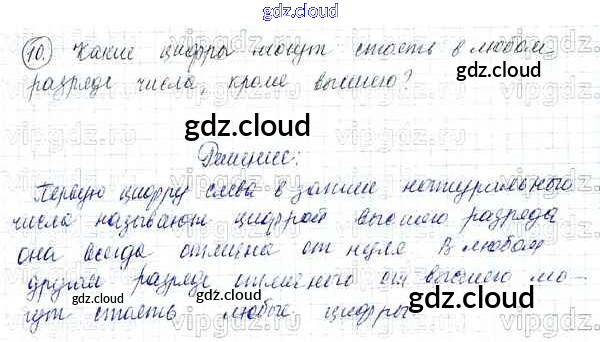 gdz.cloud
10. Какие цифры могут стоять в любом
gdz.cloud
разряде числа, кроме высшего?
gdz.cloud
Решение:
gdz.cloud
Первую цифру слева в записи натурального
числа называют цифрой высшего разряда
она всегда отлична от нуля В любом
другом разряде отличного от высшего мо-
gdz.cloud gdz.cloud gdz.cloud
гут стоять любые цифры